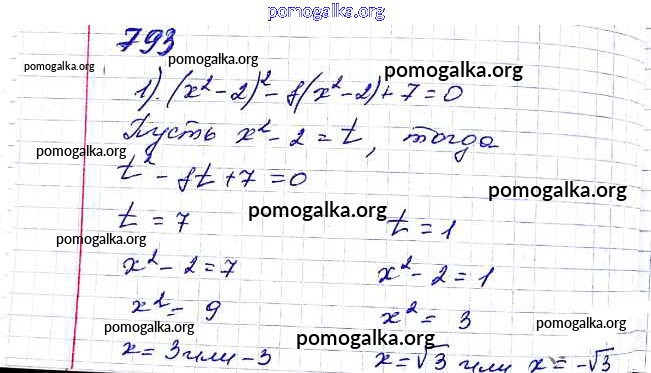 pomogalka.org
793
pomogalka.org
pomogalka.org
pomogalka.org
1). (x² - 2)² - 8(x² - 2) + 7 = 0
Пусть x² - 2 = t, тогда
pomogalka.org
t² - 8t + 7 = 0
pomogalka.org
pomogalka.org
t = 7 t = 1
pomogalka.org
x² - 2 = 7 x² - 2 = 1
x² = 9 x² = 3
pomogalka.org
pomogalka.org
pomogalka.org
x = 3 или -3 x = √3 или x = -√3